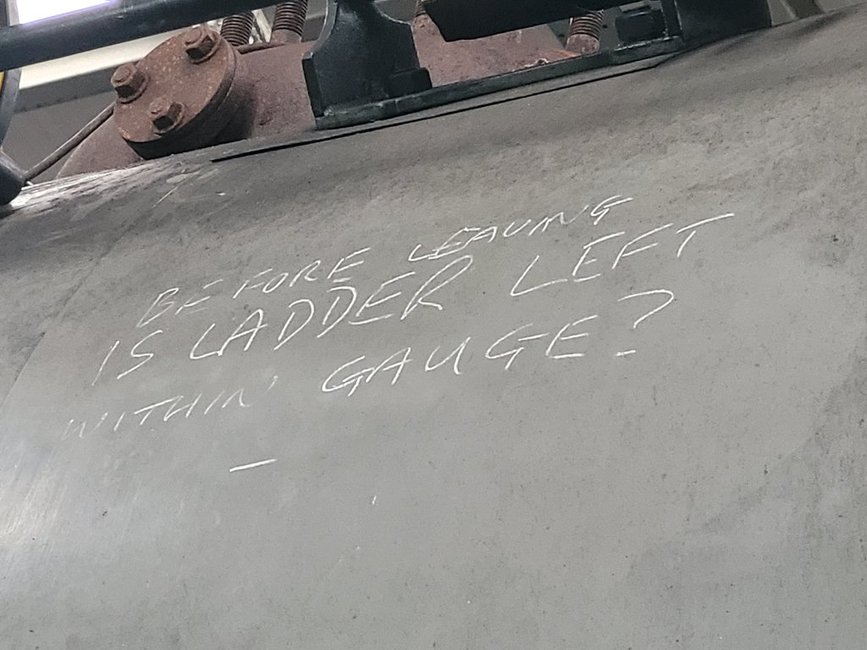 BEFORE LEAVING
IS LADDER LEFT
WITHIN GAUGE?